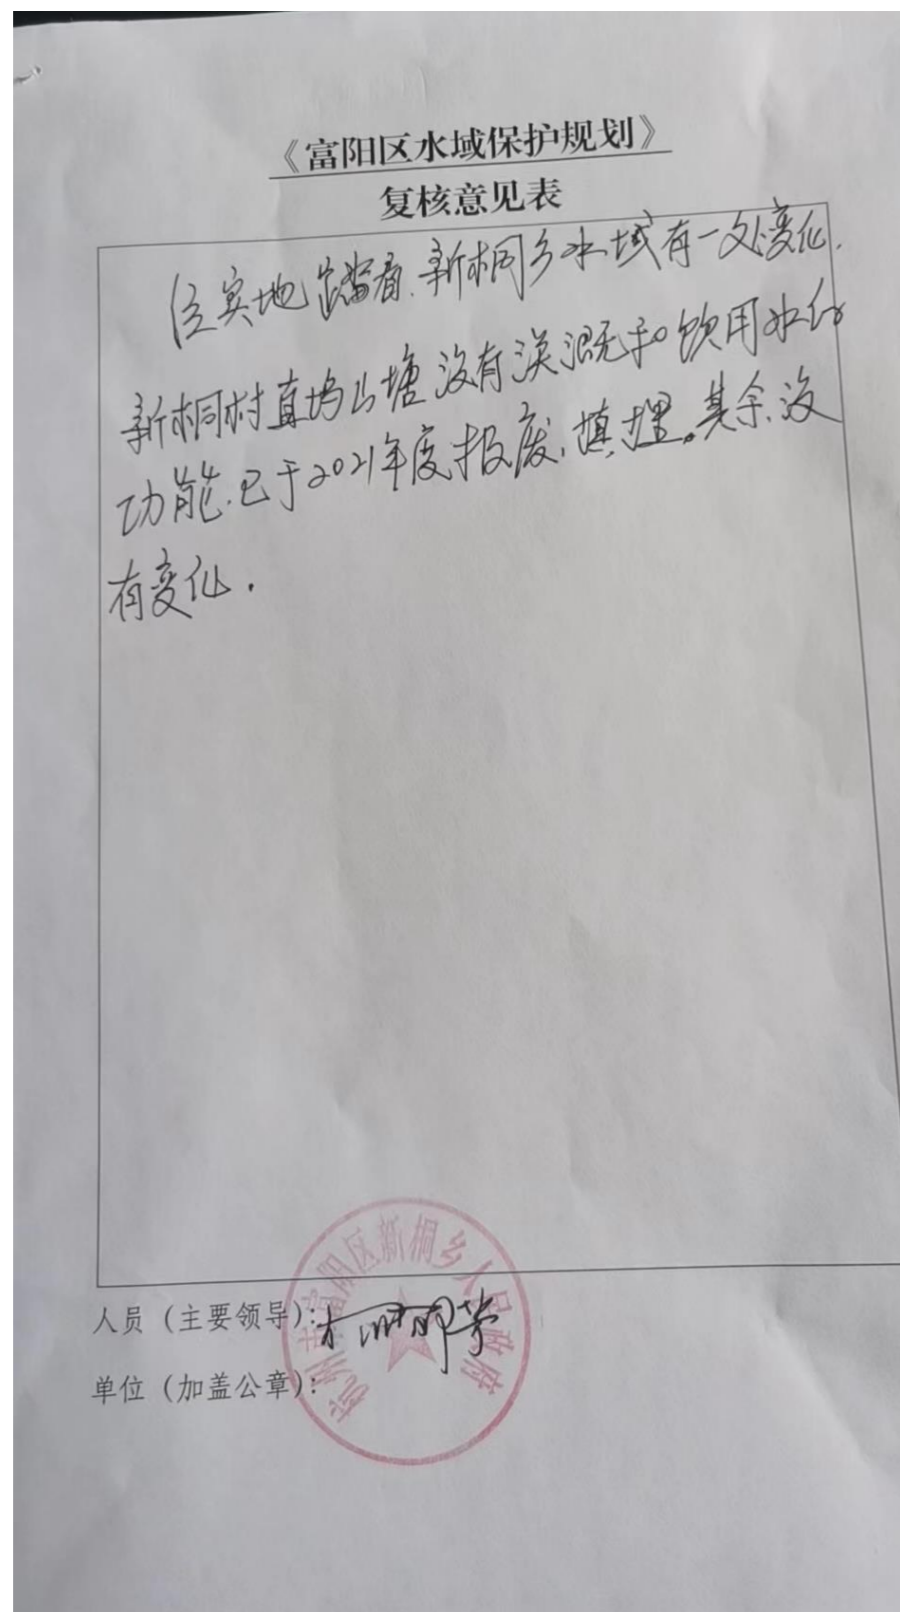 《富阳区水域保护规划》
复核意见表
经实地踏看,新桐乡水域有一处变化.
新桐村直坞山塘没有灌溉和饮用水
功能.已于2021年度报废,填埋。其余没
有变化.
人员（主要领导）：
单位（加盖公章）：
杭州市富阳区新桐乡人民政府